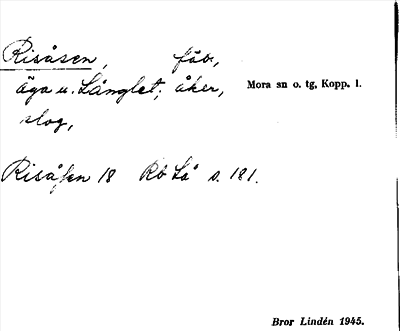 Risåsen, fäb,
äga u. Långlet; åker,
slog,
Mora sn o. tg, Kopp. l.
Risåsen 18 Rb Lå s. 181.
Bror Lindén 1945.